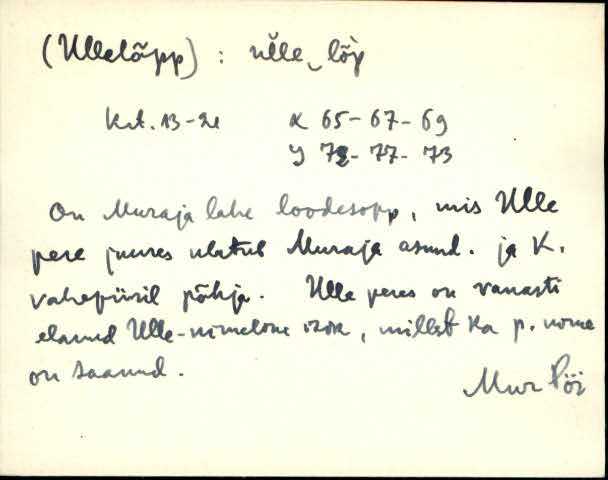 (Ullelõpp) : ulle‿lõp
Krt. 13-2e X 65-67-69
Y 72-77-73
On Muraja lahe loodesopp, mis Ulle
pere juures ulatub Muraja asund. ja K.
vahepiiril põhja. Ulle peres on vanasti
elanud Ulle-nimeline isik, millest ka p. nime
on saanud.
Mur